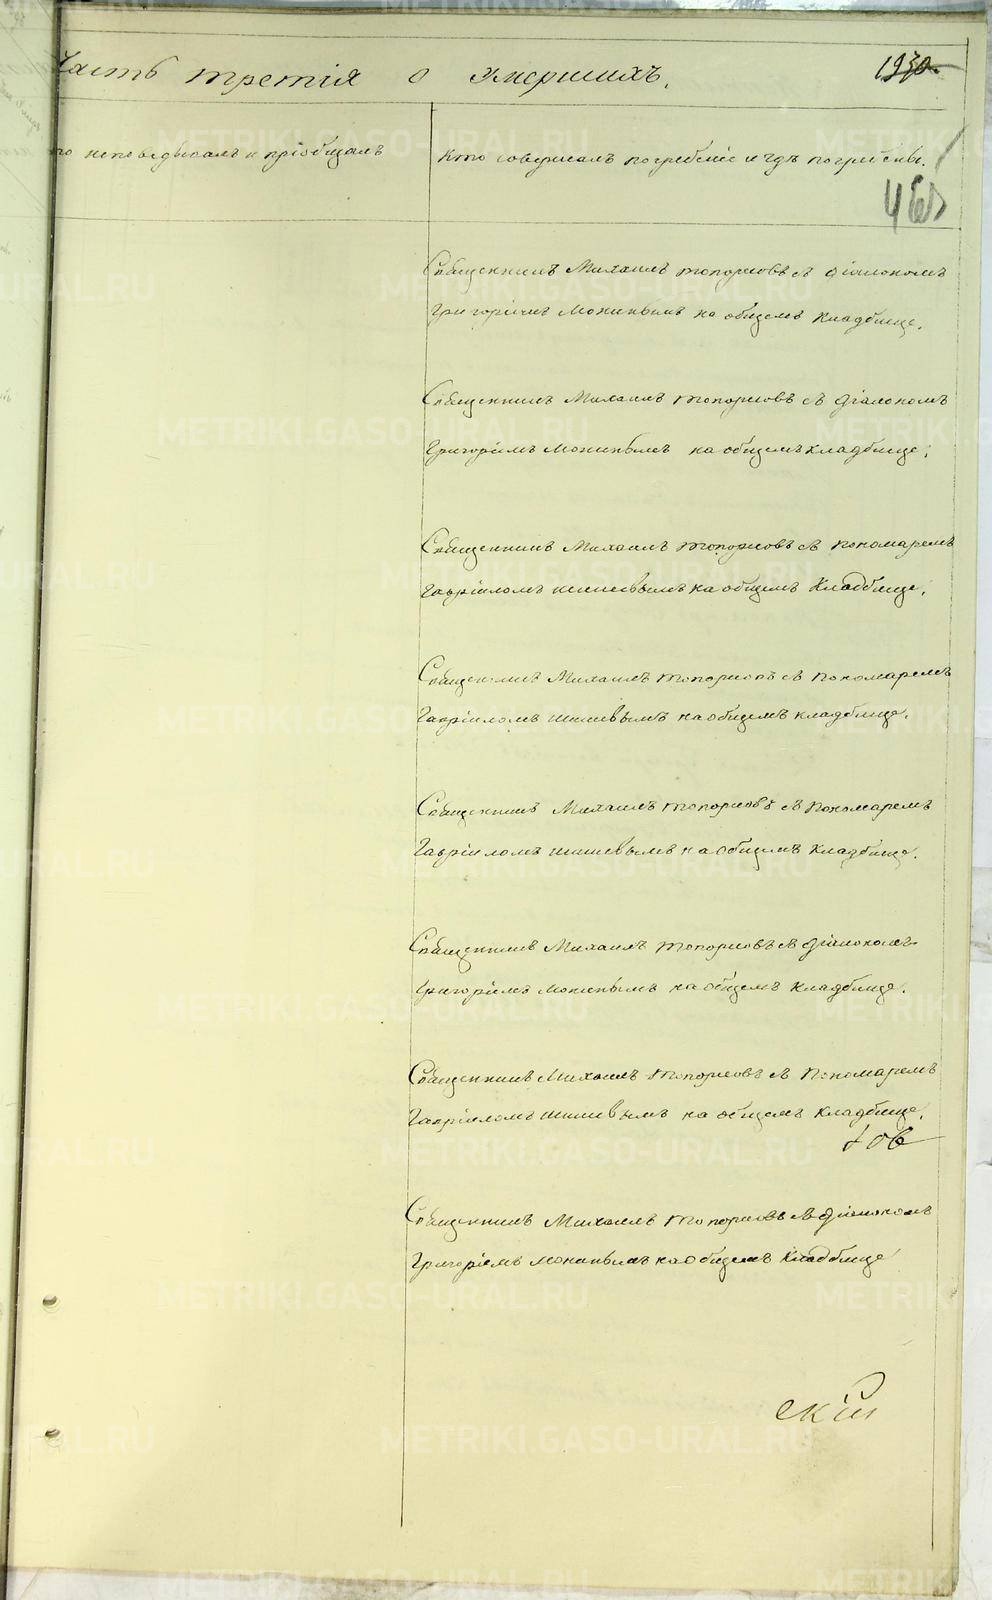 Часть третія о умершихъ.
исповѣдывалъ и пріобщалъ
Кто совершалъ погребеніе и гдѣ погребены.
468
Священникъ Михаилъ Топорковъ съ діакономъ
Григоріемъ на общемъ кладбище.
Священникъ Михаилъ Топорковъ съ діакономъ
Григоріемъ на общемъ кладбище.
Священникъ Михаилъ Топорковъ съ пономаремъ
Гавріиломъ на общемъ кладбище.
Священникъ Михаилъ Топорковъ съ пономаремъ
Гавріиломъ на общемъ кладбище.
Священникъ Михаилъ Топорковъ съ пономаремъ
Гавріиломъ на общемъ кладбище.
Священникъ Михаилъ Топорковъ съ діакономъ
Григоріемъ на общемъ кладбище.
Священникъ Михаилъ Топорковъ съ пономаремъ
Гавріиломъ на общемъ кладбище.
Священникъ Михаилъ Топорковъ съ діакономъ
Григоріемъ на общемъ кладбище
скій
METRIKI.GASO-URAL.RU